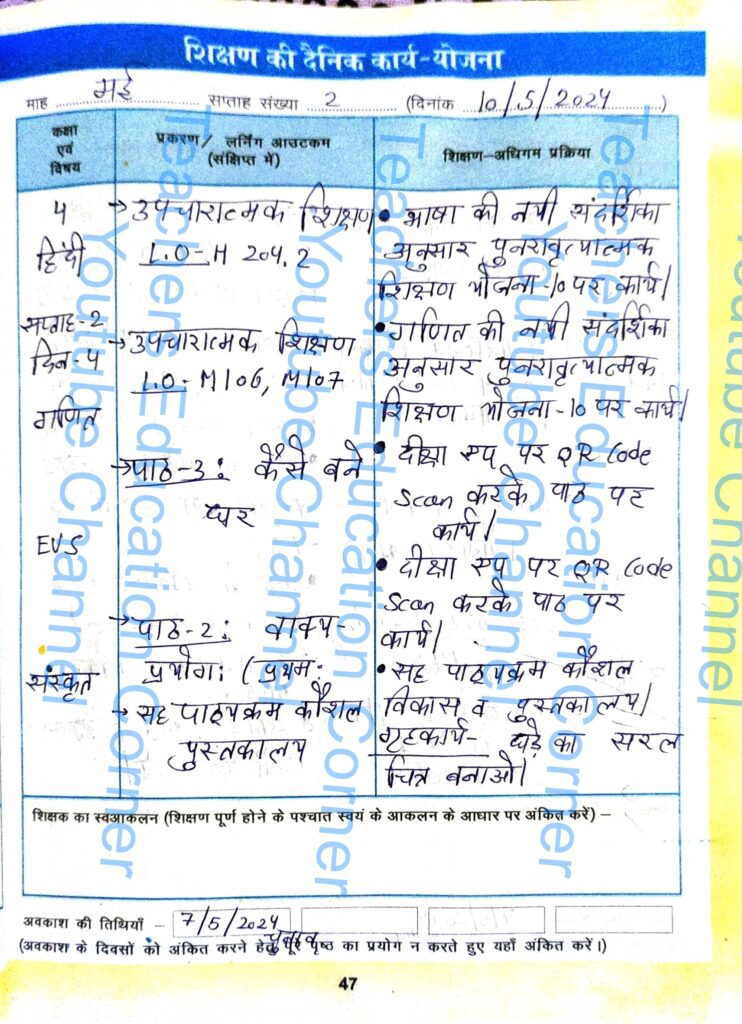 शिक्षण की दैनिक कार्य-योजना
माह मई सप्ताह संख्या 2 (दिनांक 10/5/2024)
कक्षा एवं विषय
प्रकरण/ लर्निंग आउटकम (संक्षिप्त में)
शिक्षण-अधिगम प्रक्रिया
4
हिंदी
सप्ताह-2
दिन-4
गणित
EVS
संस्कृत
→उपचारात्मक शिक्षण
L.O-H 204.2
→उपचारात्मक शिक्षण
L.O- M106, M107
→पाठ-3: कैसे बने
घर
→पाठ-2: वाक्य-
प्रयोगः (प्रथमः
→ सह पाठ्यक्रम कौशल
पुस्तकालय
• भाषा की नयी संदर्शिका
अनुसार पुनरावृत्यात्मक
शिक्षण योजना-10 पर कार्य।
• गणित की नयी संदर्शिका
अनुसार पुनरावृत्यात्मक
शिक्षण योजना-10 पर कार्य।
• दीक्षा एप पर QR Code
Scan करके पाठ पर
कार्य।
• दीक्षा एप पर QR Code
Scan करके पाठ पर
कार्य।
• सह पाठ्यक्रम कौशल
विकास व पुस्तकालय।
गृहकार्य- घड़े का सरल
चित्र बनाओ।
शिक्षक का स्वआकलन (शिक्षण पूर्ण होने के पश्चात स्वयं के आकलन के आधार पर अंकित करें) –
अवकाश की तिथियाँ – 7/5/2024
चुनाव
(अवकाश के दिवसों को अंकित करने हेतु पूरे पृष्ठ का प्रयोग न करते हुए यहाँ अंकित करें।)
47
Teachers Education Corner
Youtube Channel
Teachers Education Corner
Youtube Channel
Teachers Education Corner
Youtube Channel